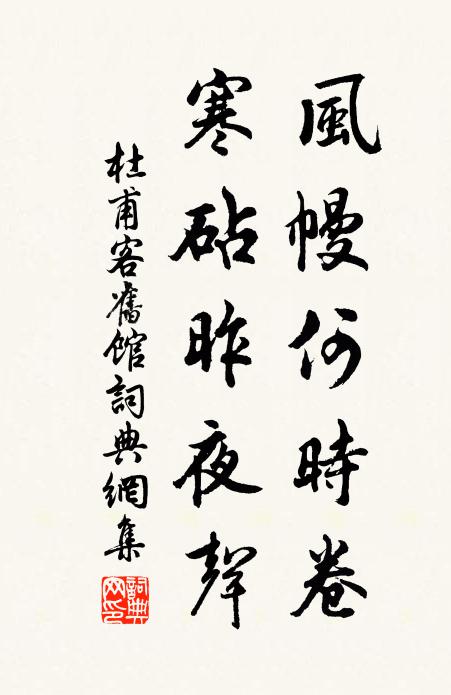 風幔何時卷
寒砧昨夜聲
杜甫客舊館詞典網集
詞典網印